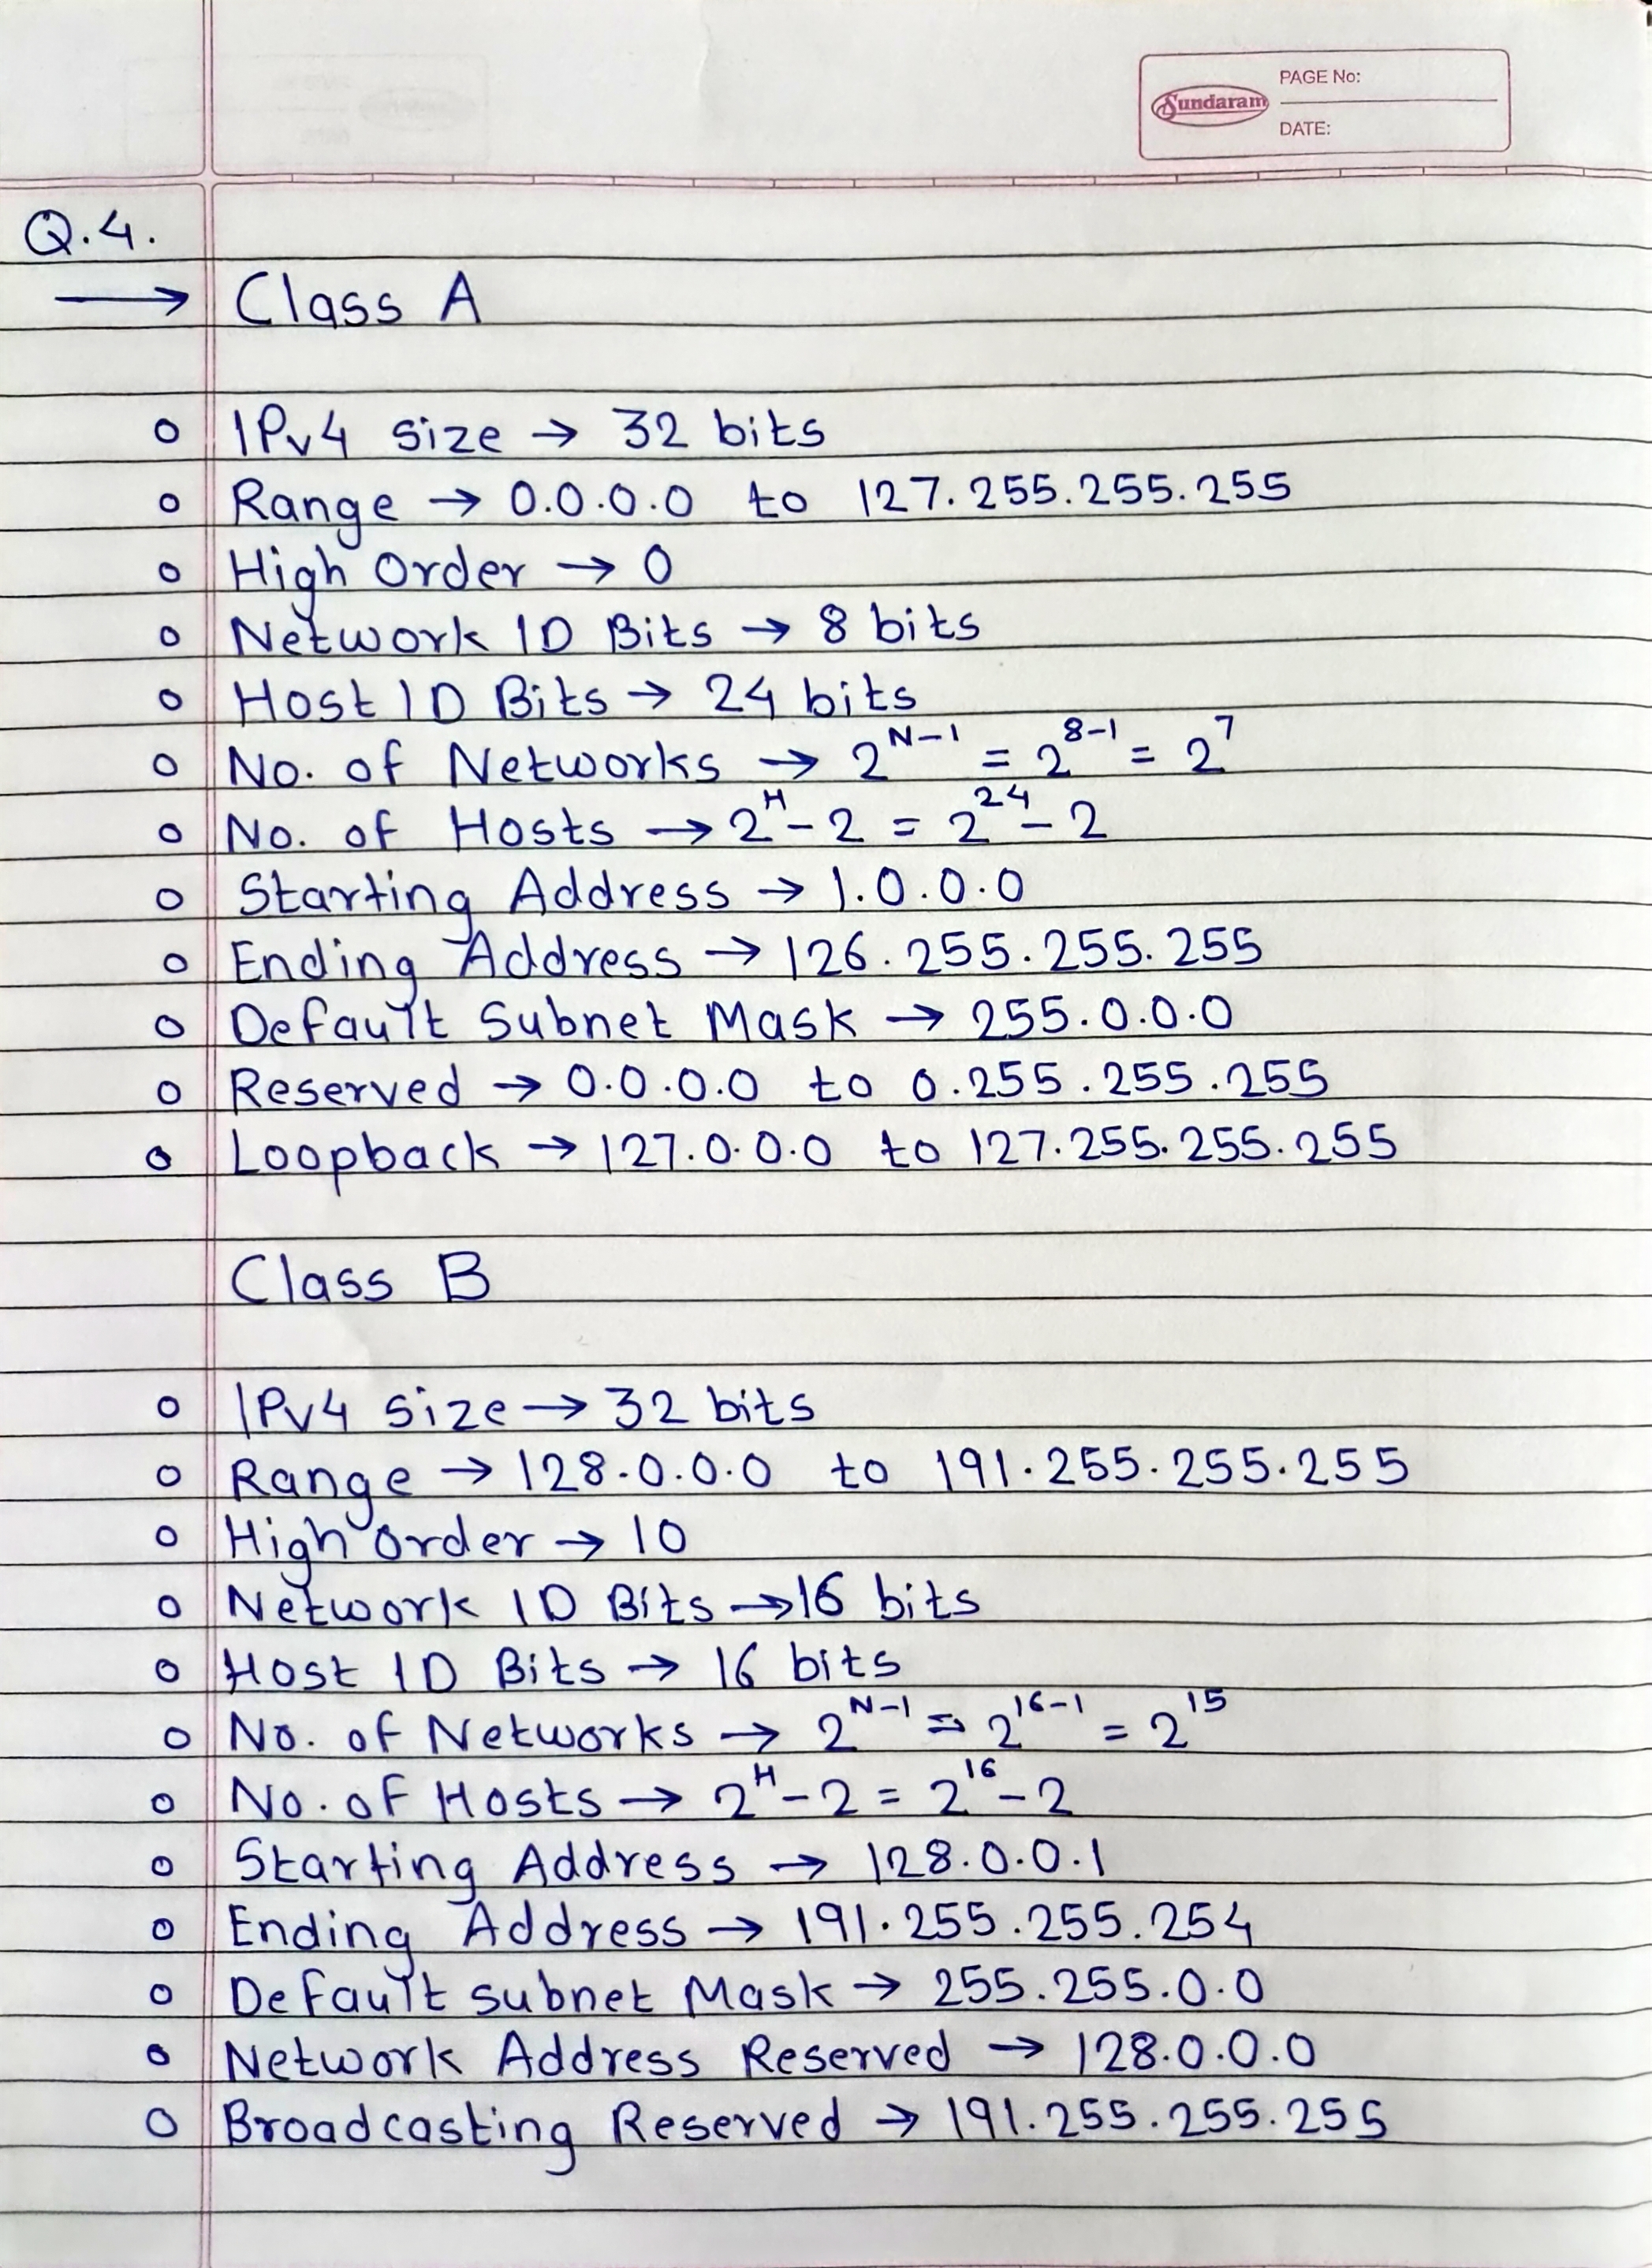 Sundaram
PAGE No:
DATE:
Q.4.
→ Class A
o IPv4 size → 32 bits
o Range → 0.0.0.0 to 127.255.255.255
o High Order → 0
o Network ID Bits → 8 bits
o Host ID Bits → 24 bits
o No. of Networks → 2^N-1 = 2^8-1 = 2^7
o No. of Hosts → 2^H - 2 = 2^24 - 2
o Starting Address → 1.0.0.0
o Ending Address → 126.255.255.255
o Default Subnet Mask → 255.0.0.0
o Reserved → 0.0.0.0 to 0.255.255.255
o Loopback → 127.0.0.0 to 127.255.255.255
Class B
o IPv4 size → 32 bits
o Range → 128.0.0.0 to 191.255.255.255
o High Order → 10
o Network ID Bits → 16 bits
o Host ID Bits → 16 bits
o No. of Networks → 2^N-1 = 2^16-1 = 2^15
o No. of Hosts → 2^H - 2 = 2^16 - 2
o Starting Address → 128.0.0.1
o Ending Address → 191.255.255.254
o Default subnet Mask → 255.255.0.0
o Network Address Reserved → 128.0.0.0
o Broadcasting Reserved → 191.255.255.255